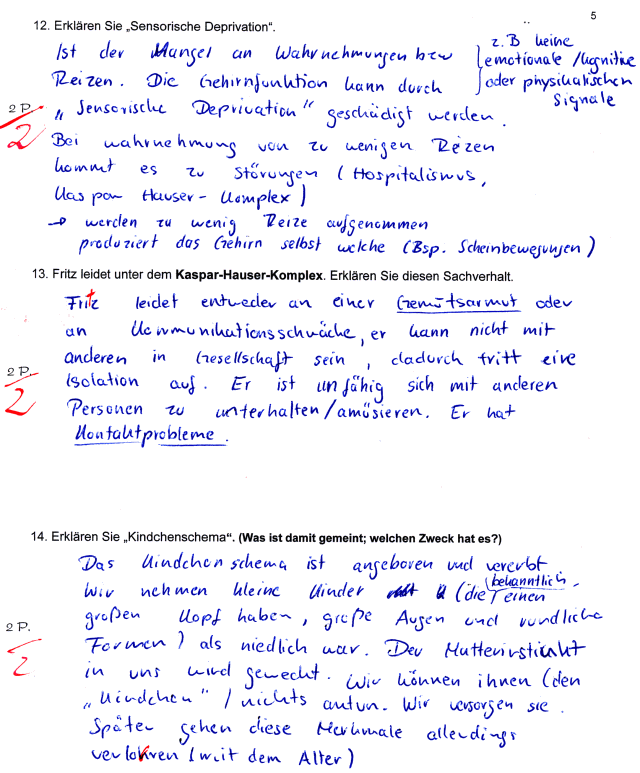 5
12. Erklären Sie „Sensorische Deprivation“.
Ist der Mangel an Wahrnehmungen bzw
Reizen. Die Gehirnfunktion kann durch
z.B keine
emotionale /kognitive
oder physikalischen
Signale
„Sensorische Deprivation“ geschädigt werden.
2 P.
2
Bei wahrnehmung von zu wenigen Reizen
kommt es zu Störungen (Hospitalismus,
Kaspar Hauser-Komplex)
→ werden zu wenig Reize aufgenommen
produziert das Gehirn selbst welche (Bsp. Scheinbewegungen)
13. Fritz leidet unter dem Kaspar-Hauser-Komplex. Erklären Sie diesen Sachverhalt.
Fritz leidet entweder an einer Gemütsarmut oder
an Kommunikationsschwäche, er kann nicht mit
anderen in Gesellschaft sein, dadurch tritt eine
2 P.
2
Isolation auf. Er ist unfähig sich mit anderen
Personen zu unterhalten/amüsieren. Er hat
Kontaktprobleme.
14. Erklären Sie „Kindchenschema“. (Was ist damit gemeint; welchen Zweck hat es?)
Das Kindchenschema ist angeboren und vererbt.
Wir nehmen kleine Kinder (die bekanntlich einen
großen Kopf haben, große Augen und rundliche
2 P.
2
Formen) als niedlich war. Der Mutterinstinkt
in uns wird geweckt. Wir können ihnen (den
„Kindchen“) nichts antun. Wir versorgen sie.
Später gehen diese Merkmale allerdings
verlohren (mit dem Alter)